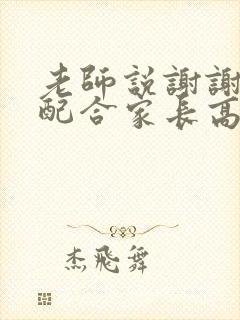 老師説謝謝
配合家長高
杰飛舞